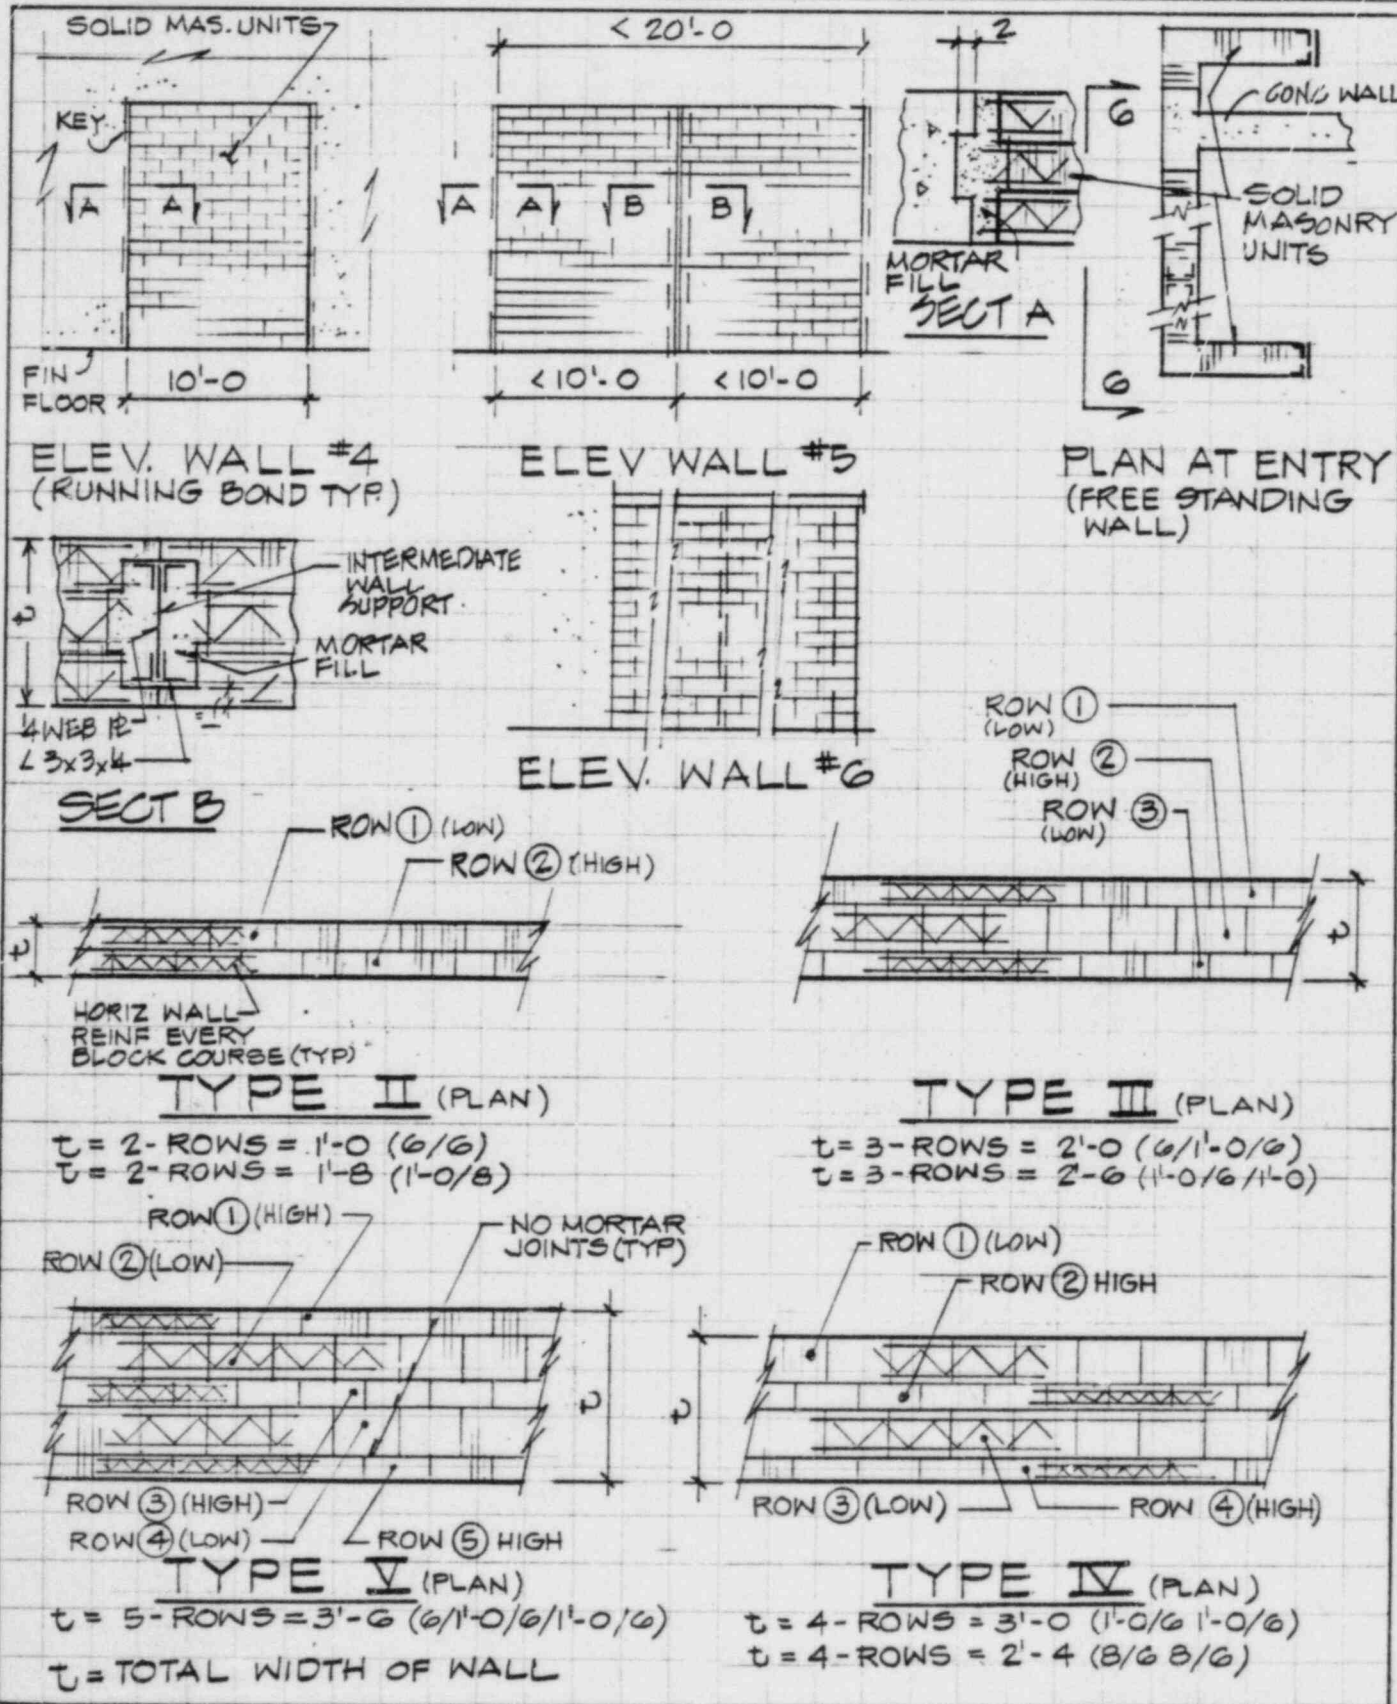 SOLID MAS. UNITS
KEY
A A
FIN
FLOOR
10'-0
ELEV. WALL #4
(RUNNING BOND TYP.)
< 20'-0
A A B B
<10'-0 <10'-0
ELEV WALL #5
2
MORTAR
FILL
SECT A
6
6
CONC WALL
SOLID
MASONRY
UNITS
PLAN AT ENTRY
(FREE STANDING
WALL)
t
INTERMEDIATE
WALL
SUPPORT
MORTAR
FILL
1/4 WEB PL
L 3x3x1/4
SECT B
ELEV. WALL #6
ROW 1 (LOW)
ROW 2 (HIGH)
t
HORIZ WALL
REINF EVERY
BLOCK COURSE (TYP)
TYPE II (PLAN)
t = 2-ROWS = 1'-0 (6/6)
t = 2-ROWS = 1'-8 (1'-0/8)
ROW 1
(LOW)
ROW 2
(HIGH)
ROW 3
(LOW)
t
TYPE III (PLAN)
t = 3-ROWS = 2'-0 (6/1'-0/6)
t = 3-ROWS = 2'-6 (1'-0/6/1'-0)
ROW 1 (HIGH)
ROW 2 (LOW)
NO MORTAR
JOINTS (TYP)
t
ROW 3 (HIGH)
ROW 4 (LOW)
ROW 5 HIGH
TYPE V (PLAN)
t = 5-ROWS = 3'-6 (6/1'-0/6/1'-0/6)
t = TOTAL WIDTH OF WALL
ROW 1 (LOW)
ROW 2 HIGH
t
ROW 3 (LOW)
ROW 4 (HIGH)
TYPE IV (PLAN)
t = 4-ROWS = 3'-0 (1'-0/6 1'-0/6)
t = 4-ROWS = 2'-4 (8/6 8/6)